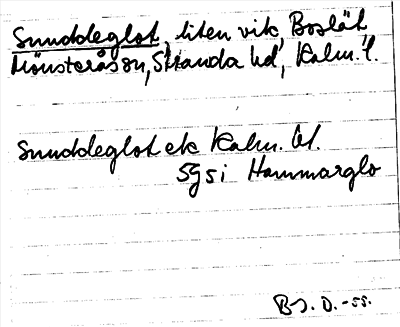 Sunddeglot, liten vik, Boslät
Mönsterås sn, Stranda hd, Kalm. l.
Sunddeglot ek Kalm. bl.
5g5i Hammarglo
B.J. D. -55.